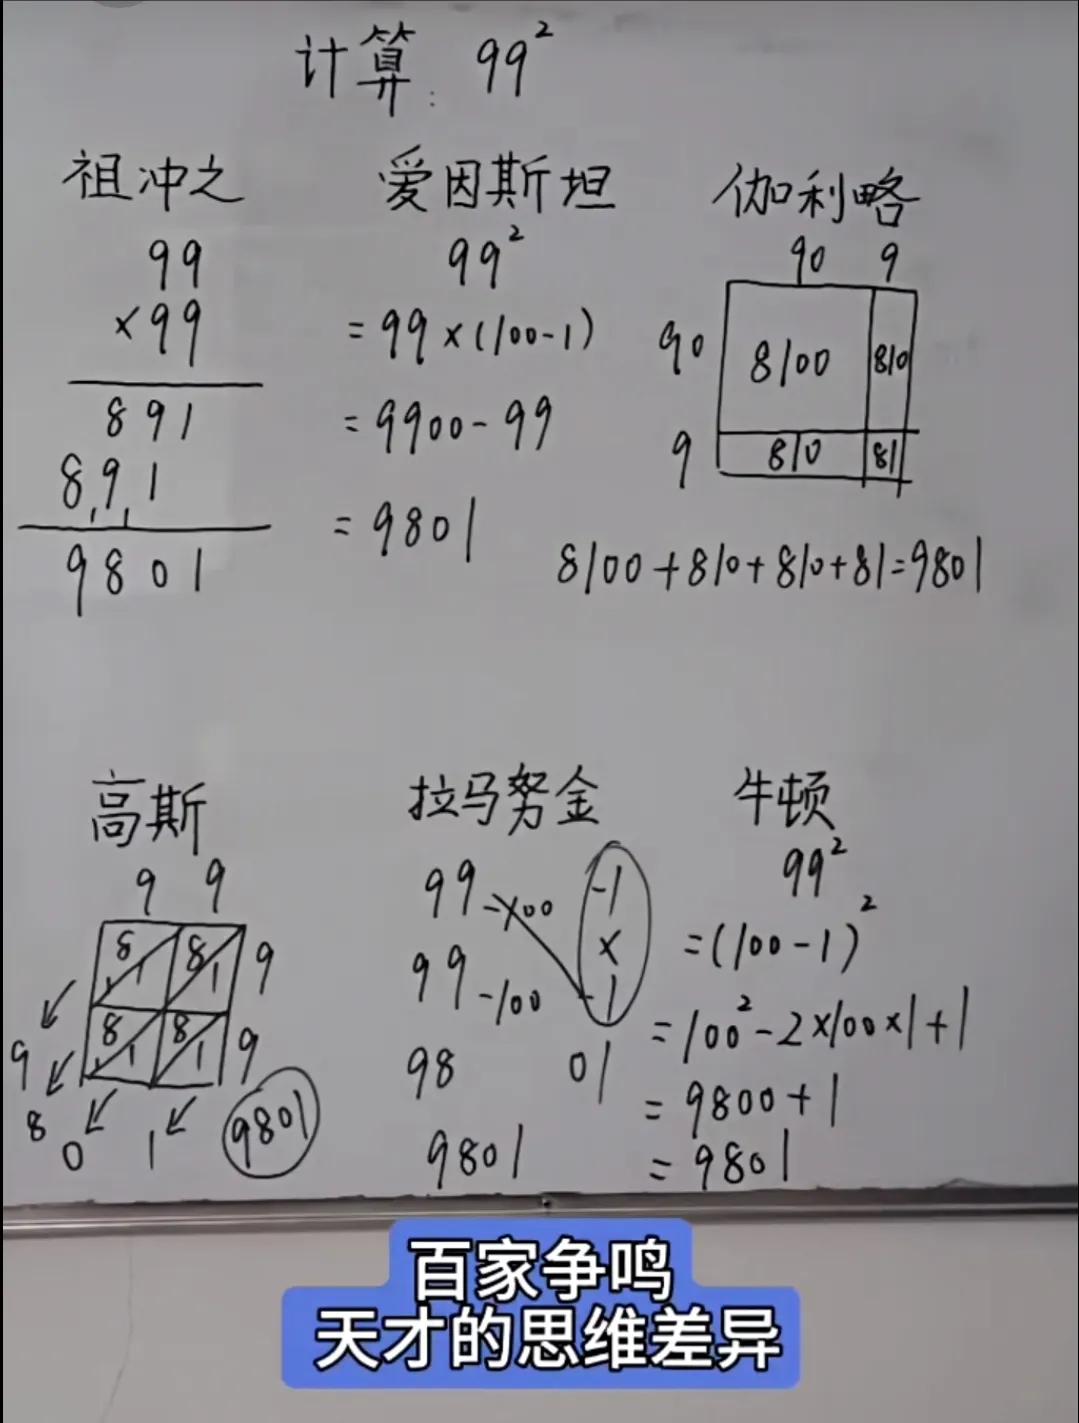 计算: 99²
祖冲之
99
×99
891
891
9801
爱因斯坦
99²
=99×(100-1)
=9900-99
=9801
伽利略
90 9
90 8100 810
9 810 81
8100+810+810+81=9801
高斯
9 9
8 1 8 1 9
8 1 8 1 9
9
8
0 1
9801
拉马努金
99-100 -1
×
99-100 -1
98 01
9801
牛顿
99²
=(100-1)²
=100²-2×100×1+1
=9800+1
=9801
百家争鸣
天才的思维差异